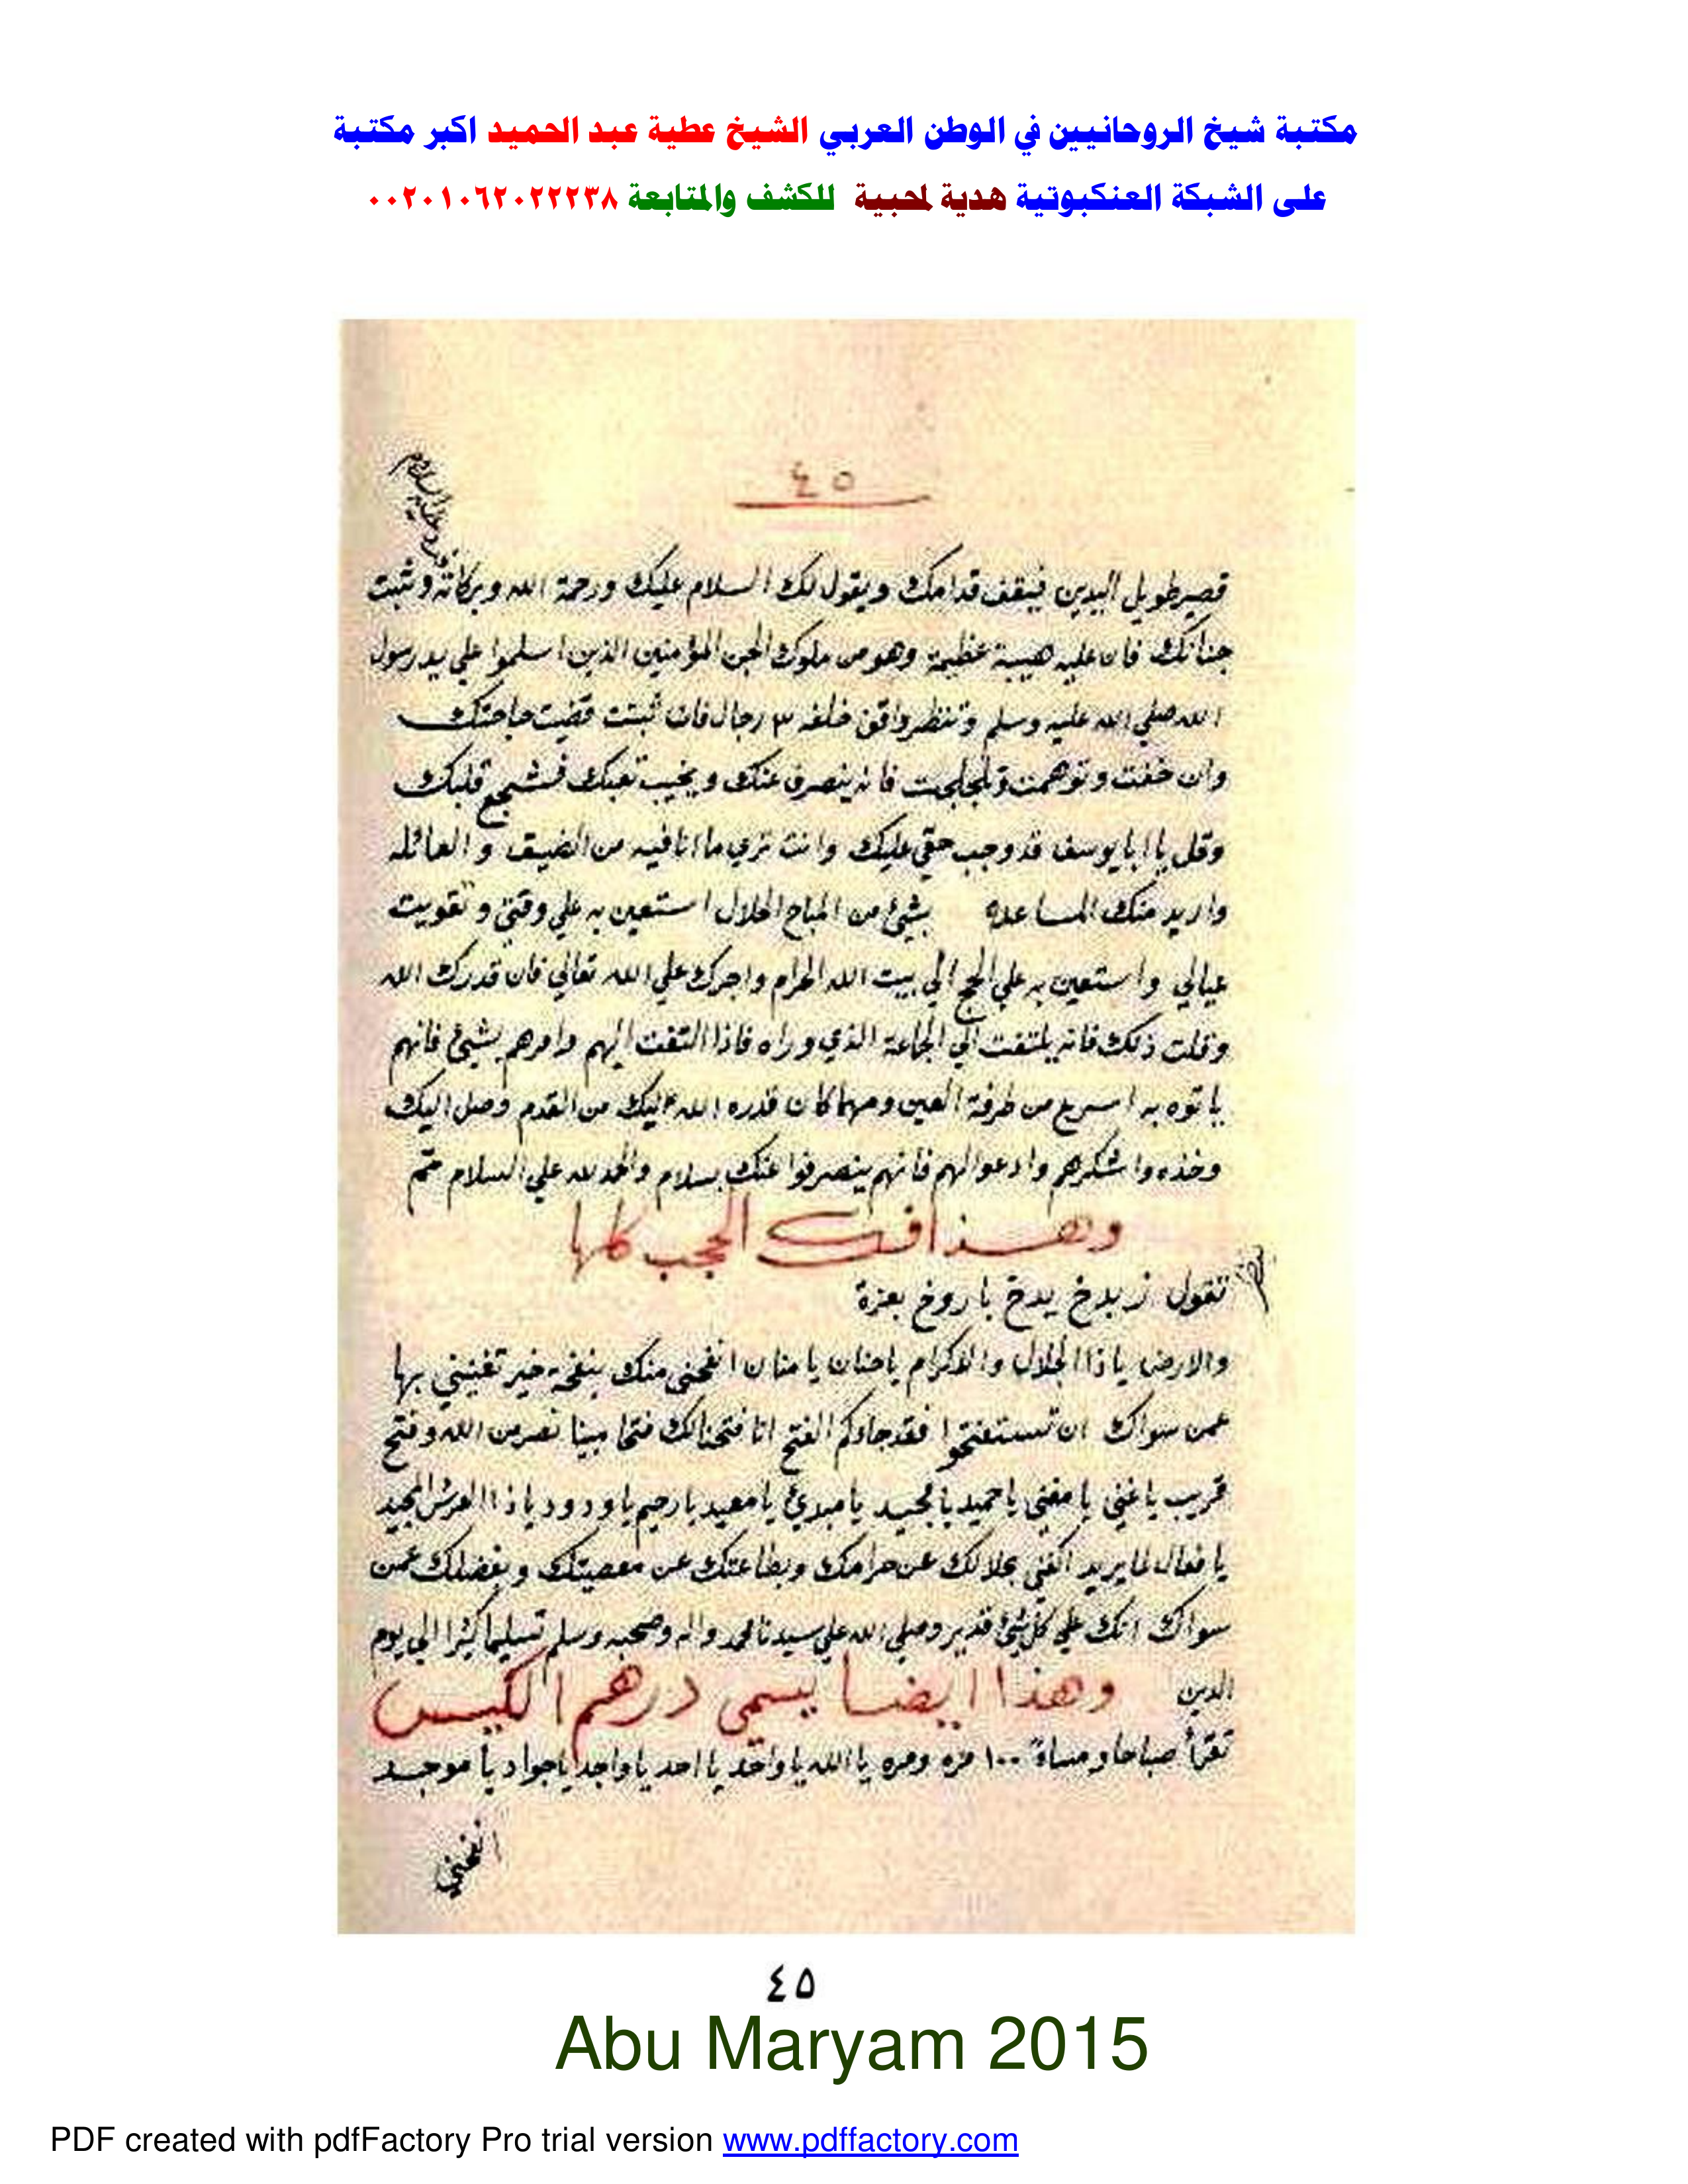 مكتبة شيخ الروحانيين في الوطن العربي الشيخ عطية عبد الحميد اكبر مكتبة
على الشبكة العنكبوتية هدية لمحبية للكشف والمتابعة ٠٠٢٠١٠٦٢٠٢٢٢٣٨
٤٥
قصير طويل اليدين فيقف قدامك ويقول لك السلام عليك ورحمة الله وبركاته وثبت
جنانك فان عليه هيبة عظيمة وهو من ملوك الجن المؤمنين الذين اسلموا علي يد رسول
الله صلي الله عليه وسلم وتنظر واقف خلفه ٣ رجال فان ثبتت قضيت حاجتك
وان خفت وتوهمت وتلجلجت فانه ينصرف عنك ويخيب تعبك فشجع قلبك
وقل يا ابا يوسف قد وجب حقي عليك وانت تري ما انا فيه من الضيق والعائله
واريد منك المساعده بشئ من المباح الحلال استعين به علي وقتي وتقويت
عيالي واستعين به علي الحج الي بيت الله الحرام واجرك علي الله تعالي فان قدرك الله
وقلت ذلك فانه يلتفت الي الجماعة الذي وراه فاذا التفت اليهم وامرهم بشئ فانهم
ياتوه به اسرع من طرفة العين ومهما كان قدره الله عليك من القدم وصل اليك
وخذه واشكرهم وادعوا لهم فانهم ينصرفوا عنك بسلام والحمد لله علي السلام تم
وهذا فك الحجب كلها
تقول زبدخ يدخ باروخ بعزة
والارض يا ذا الجلال والاكرام يا حنان يا منان انفحني منك بنفحة خير تغنيني بها
عمن سواك ان تستفتحوا فقد جاءكم الفتح انا فتحنا لك فتحا مبينا نصر من الله وفتح
قريب يا غني يا مغني يا حميد يا مجيد يا مبدئ يا معيد يا رحيم يا ودود يا ذا العرش المجيد
يا فعال لما يريد اكفني بحلالك عن حرامك وبطاعتك عن معصيتك وبفضلك عمن
سواك انك علي كل شئ قدير وصلي الله علي سيدنا محمد واله وصحبه وسلم تسليما كثيرا الي يوم
الدين وهذا ايضا يسمي درهم الكيس
تقرأ صباحا ومساء ١٠٠ مره ومره يا الله يا واحد يا احد يا واجد يا جواد يا موجد
انفحني
٤٥
Abu Maryam 2015
PDF created with pdfFactory Pro trial version www.pdffactory.com